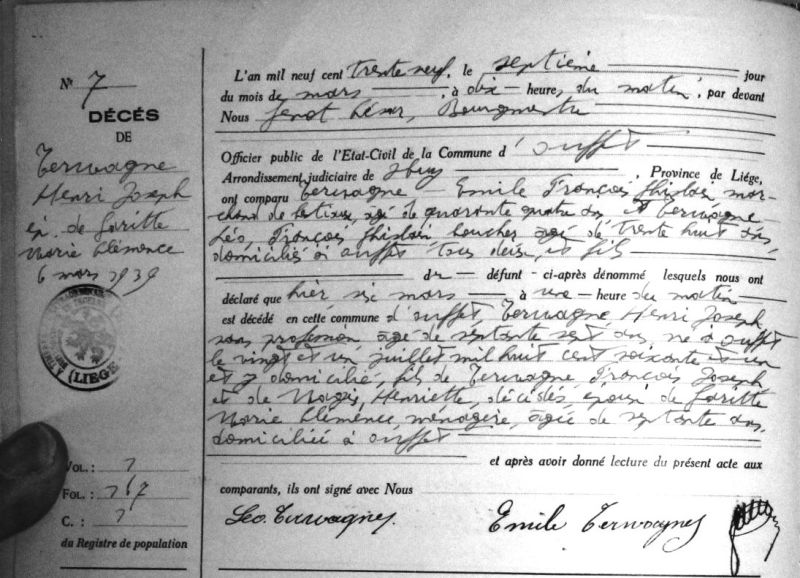 N° 7
DÉCÉS
DE
Terwagne
Henri Joseph
ép. de Faritte
Marie Clémence
6 mars 1939
(LIEGE)
VOL. : 1
FOL. : 167
C. : 1
du Registre de population
L'an mil neuf cent trente neuf, le septième jour
du mois de mars, à dix heures, du matin, par devant
Nous César, Bourgmestre
Officier public de l'Etat-Civil de la Commune d'Ouffet
Arrondissement judiciaire de Huy, Province de Liége,
ont comparu Terwagne Emile François Ghislain mar-
chand de bestiaux, agé de quarante quatre ans et Terwagne
Léo, François Ghislain boucher agé de trente huit ans,
domiciliés à Ouffet tous deux, et fils
du défunt - ci-après dénommé lesquels nous ont
déclaré que hier six mars à une heure du matin
est décédé en cette commune d'Ouffet Terwagne Henri Joseph
sans profession, agé de septante sept ans, né à Ouffet
le vingt et un juillet mil huit cent soixante et un
et y domicilié, fils de Terwagne François Joseph
et de Henriette, décédés, époux de Faritte
Marie Clémence ménagère, agée de septante ans,
domiciliée à Ouffet
et après avoir donné lecture du présent acte aux
comparants, ils ont signé avec Nous
Leo Terwagne.
Emile Terwagne